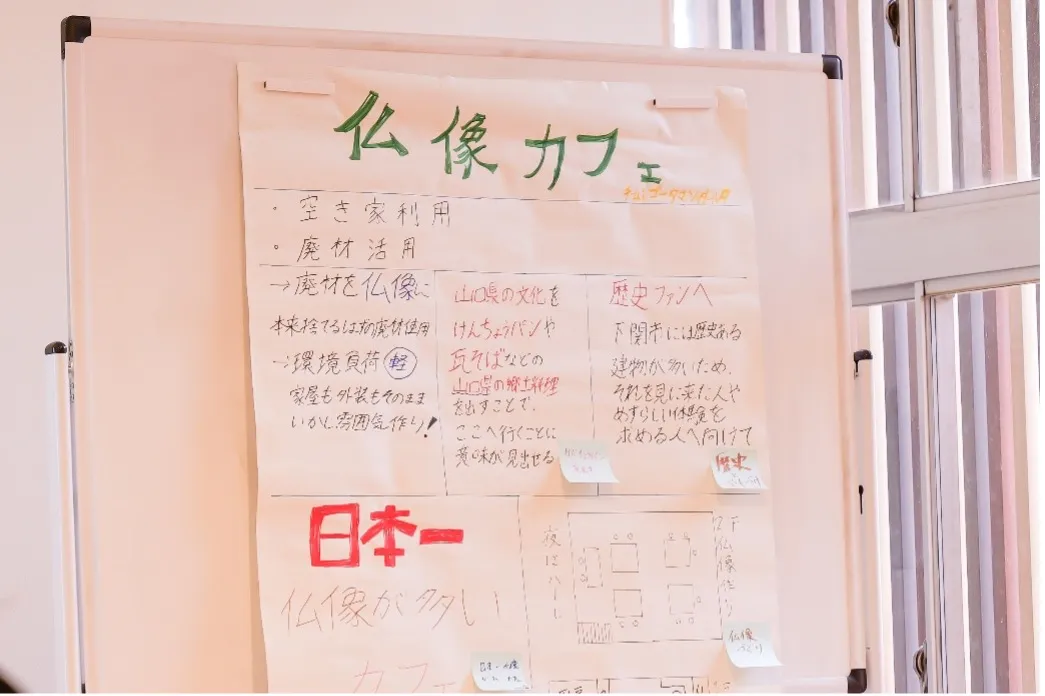 仏像カフェ
・空き家利用
・廃材活用
→廃材を仏像に
本来捨てるはずの廃材使用
→環境負荷軽
家屋も外装もそのまま
いかし雰囲気作り!
山口県の文化を
けんちょうパンや
瓦そばなどの
山口県の郷土料理
を出すことで、
ここへ行くことに
意味が見出せる
歴史ファンへ
下関市には歴史ある
建物が多いため、
それを見に来た人や
めずらしい体験を
求める人へ向けて
歴史
日本一
仏像が多い
カフェ
夜はバー
仏像